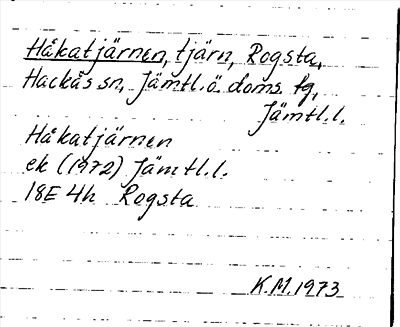 Håkatjärnen, tjärn, Rogsta,
Hackås sn, Jämtl. ö. doms. tg,
Jämtl.l.
Håkatjärnen
ek (1972) Jämtl.l.
18E 4h Rogsta
K.M.1973